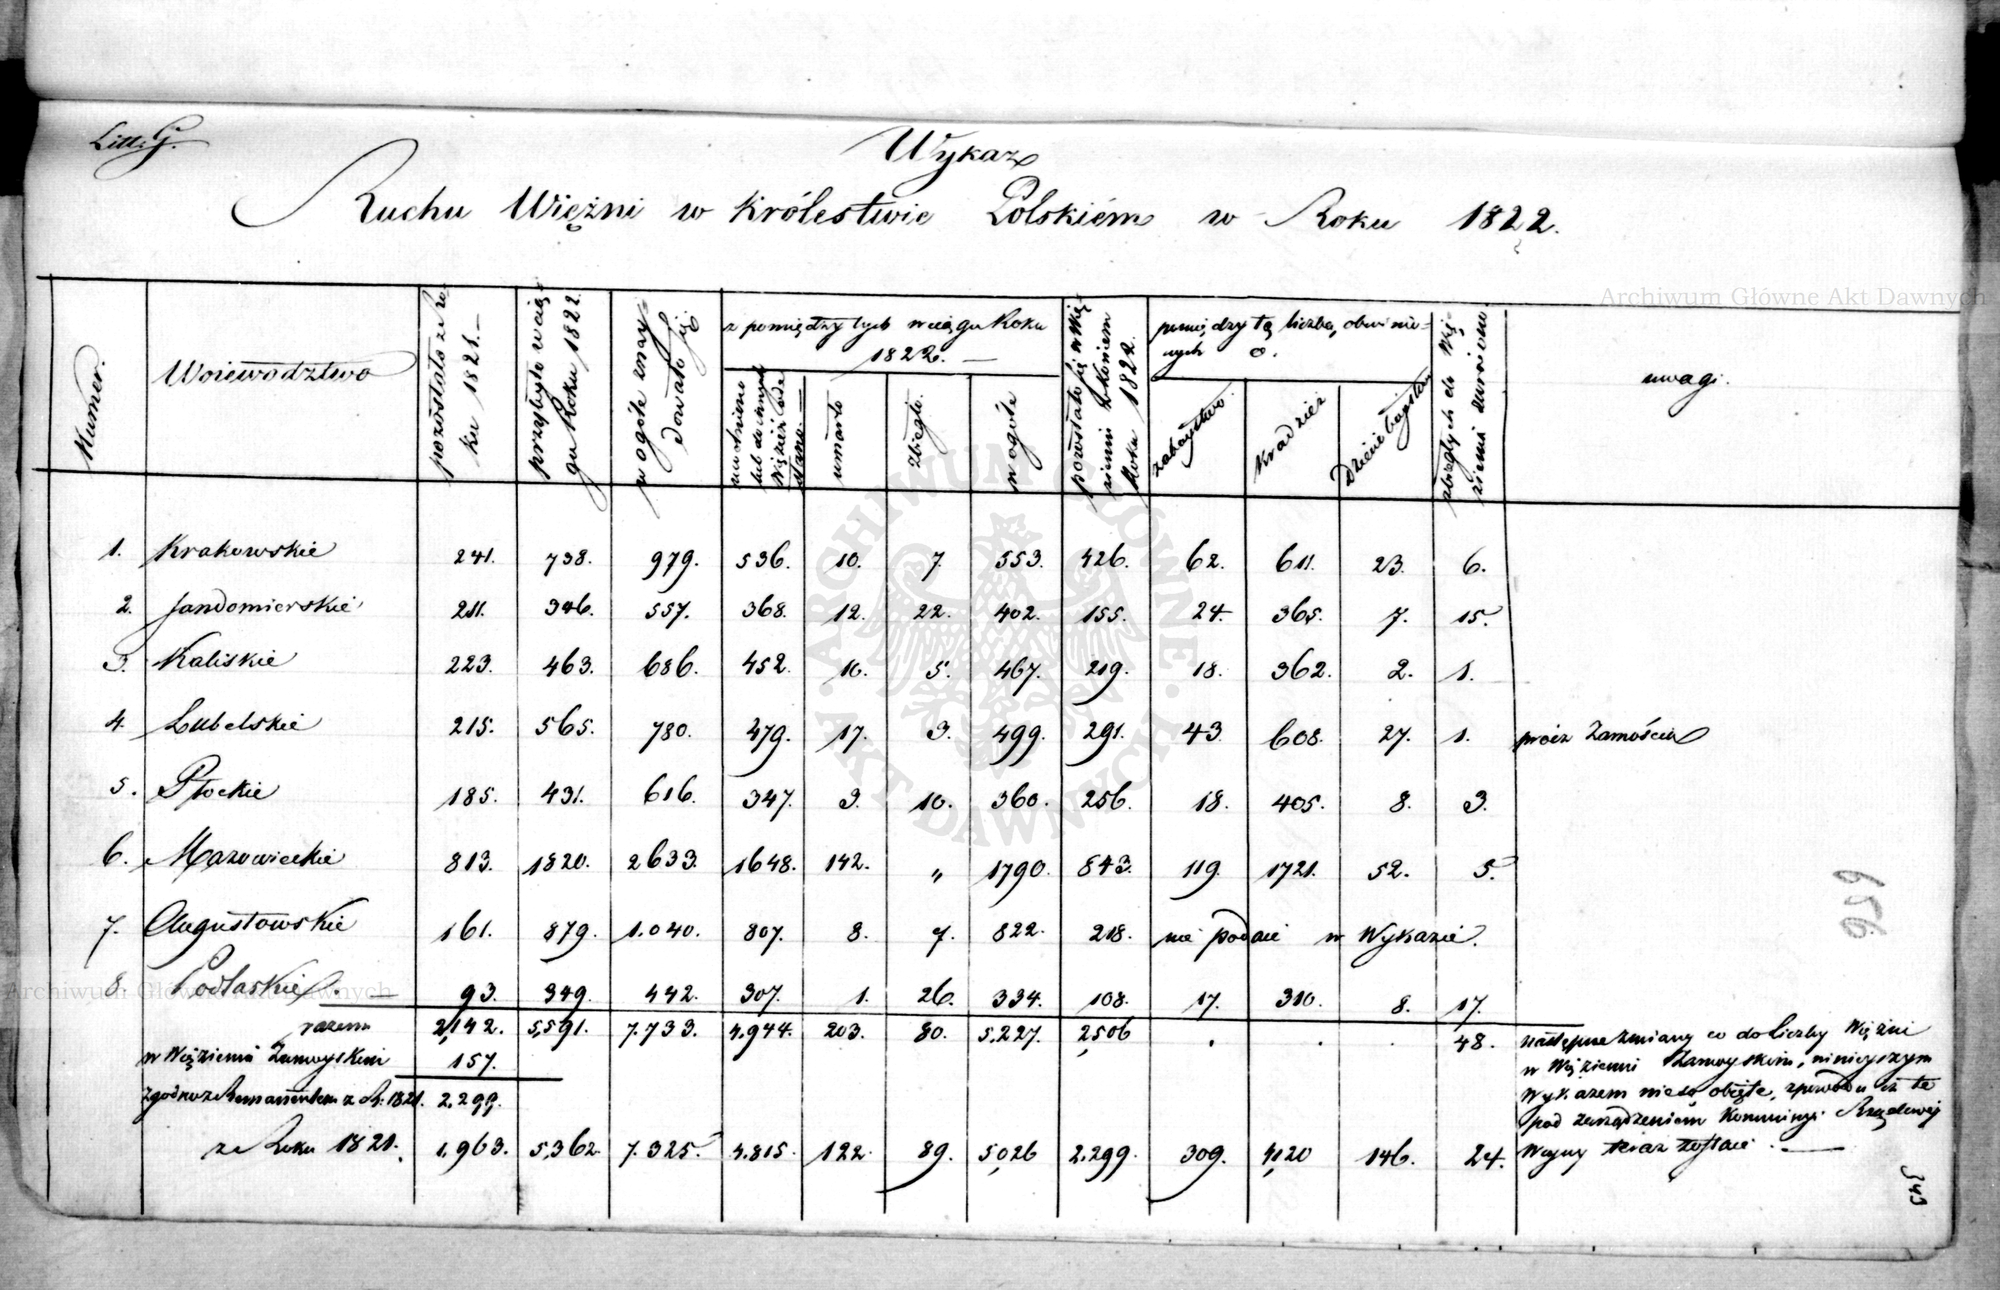 Litt. G.
Wykaz
Ruchu Więźni w Królestwie Polskiém w Roku 1822.
Archiwum Główne Akt Dawnych
Numer.
Woiewodztwo
pozostało z Ro-
ku 1821.
przybyło w cią-
gu Roku 1822.
w ogóle znay-
dowało się
z pomiędzy tych w ciągu Roku
1822.
uwolniono
lub do innych
Więzień ode-
słano.
umarło
zbiegło.
w ogóle
pozostało się w Wię-
zieniu z końcem
Roku 1822.
pomiędzy tą liczbą, obwinio-
nych o.
zabóystwo.
Kradzież
Dzieciobóystwo
zbiegłych do Wię-
zienia uwagi.
1. Krakowskie 241. 738. 979. 536. 10. 7. 553. 426. 62. 611. 23. 6.
2. Sandomierskie 211. 346. 557. 368. 12. 22. 402. 155. 24. 365. 7. 15.
3. Kaliskie 223. 463. 686. 452. 10. 5. 467. 219. 18. 362. 2. 1.
4. Lubelskie 215. 565. 780. 479. 17. 3. 499. 291. 43. 608. 27. 1. prócz Zamościa
5. Płockie 185. 431. 616. 347. 3. 10. 360. 256. 18. 405. 8. 3.
6. Mazowieckie 813. 1820. 2633. 1648. 142. „ 1790. 843. 119. 1721. 52. 5.
7. Augustowskie 161. 879. 1.040. 807. 8. 7. 822. 218. nie podaie w Wykazie.
8. Podlaskie. 93. 349. 442. 307. 1. 26. 334. 108. 17. 310. 8. 17.
razem 2,142. 5,591. 7.733. 4.944. 203. 80. 5.227. 2,506 . . . 48.
w Więzieniu Zamoyskim 157.
zgodno z Remanentem z R. 1821. 2.299.
z Roku 1821. 1.963. 5,362. 7.325. 4.815. 122. 89. 5,026 2.299. 309. 4,120 146. 24.
następne zmiany co do liczby Więźni
w Więzieniu Zamoyskim, ninieyszym
Wykazem nie są obięte, z powodu iż te
pod zarządzeniem Kommissyi Rządowéy
Woyny teraz zostaie.
656.
343
ARCHIWUM GŁÓWNE AKT DAWNYCH
Archiwum Główne Akt Dawnych